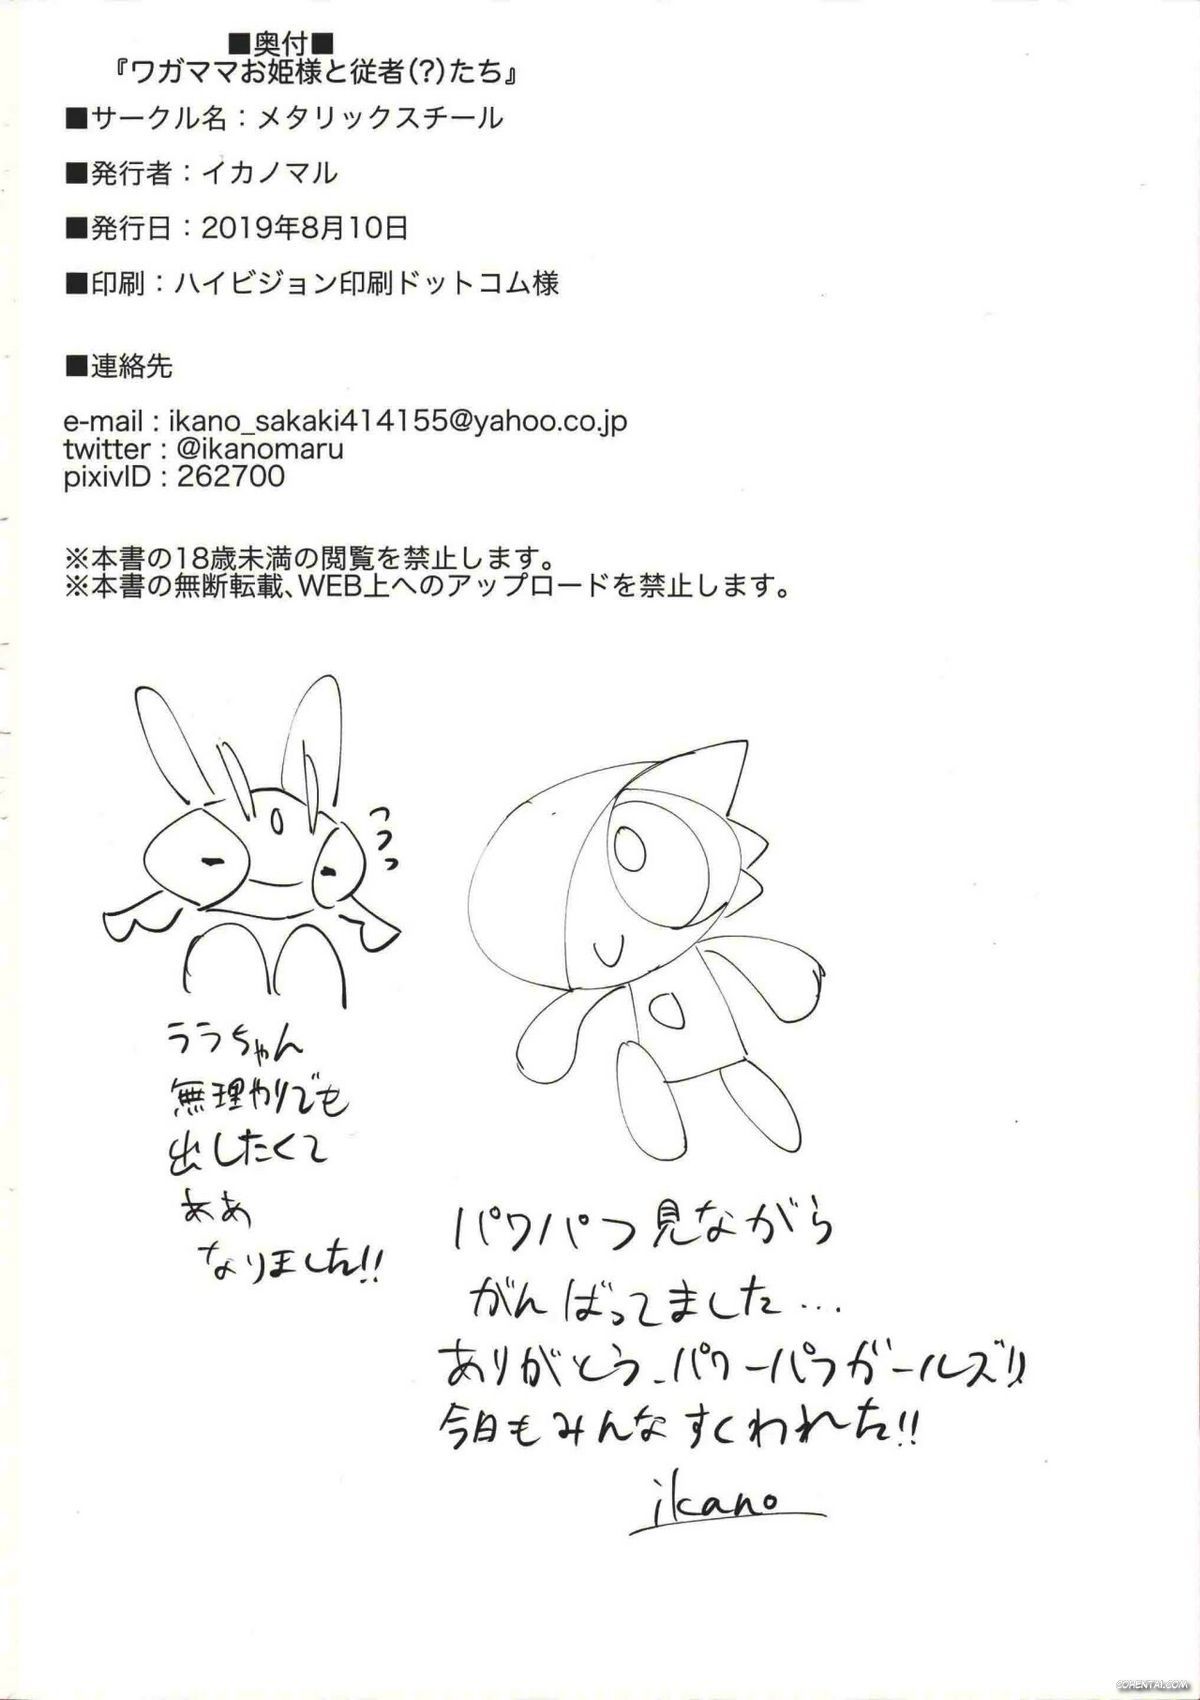 ■奥付■
『ワガママお姫様と従者(?)たち』
■サークル名：メタリックスチール
■発行者：イカノマル
■発行日：2019年8月10日
■印刷：ハイビジョン印刷ドットコム様
■連絡先
e-mail : ikano_sakaki414155@yahoo.co.jp
twitter : @ikanomaru
pixivID : 262700
※本書の18歳未満の閲覧を禁止します。
※本書の無断転載、WEB上へのアップロードを禁止します。
フフッ
ララちゃん
無理やりでも
出したくて
ああ
なりました!!
パワパフ見ながら
がんばってました...
ありがとう、パワーパフガールズ!!
今日もみんなすくわれた!!
ikano
COHENTAI.COM